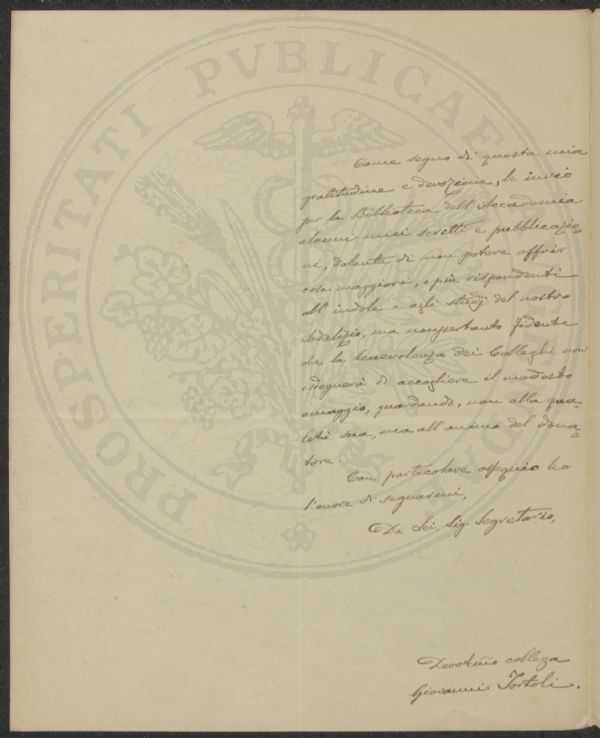 PROSPERITATI PVBLICAE
Come segno di questa mia
gratitudine e devozione, le invio
per la Biblioteca dell'Accademia
alcuni miei scritti e pubblicazio=
ni, dolente di non potere offrir
cosa maggiore, o più rispondenti
all'indole e agli studj del nostro
Sodalizio, ma nonpertanto fidente
che la benevolenza dei Colleghi non
isdegnerà di accogliere il modesto
omaggio, guardando, non alla qua=
lità sua, ma all'animo del dona=
tore.
Con particolare ossequio ho
l'onore di segnarmi,
Di Lei, Sig. Segretario,
Devotmo collega
Giovanni Tortoli.